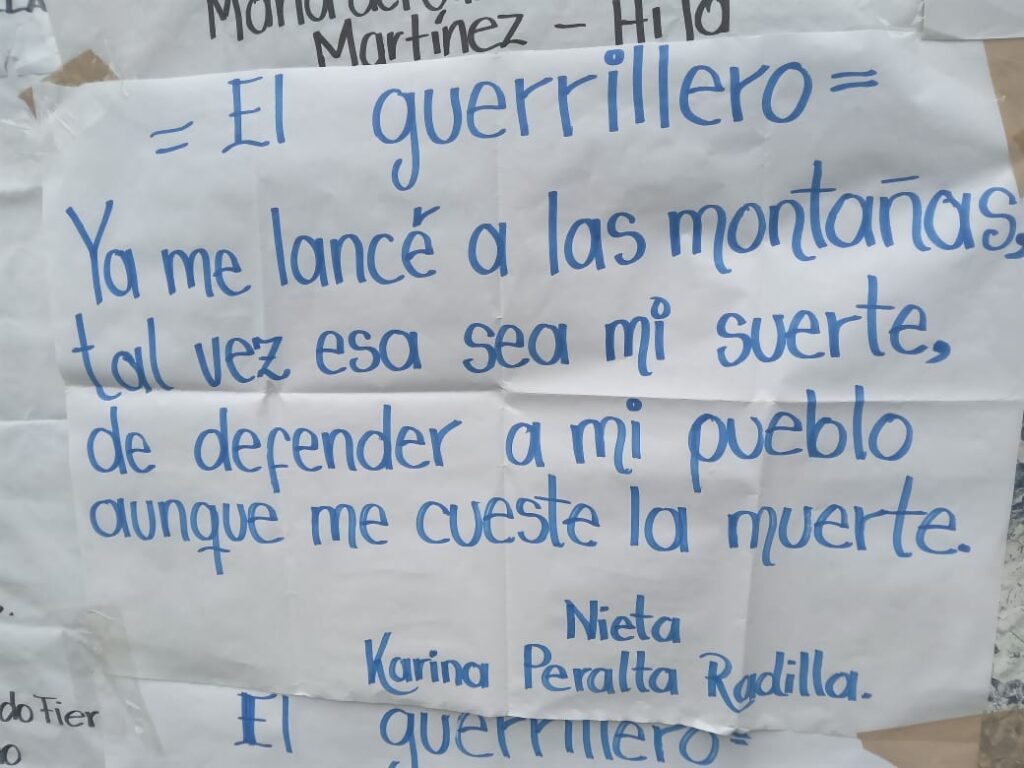 Martínez - Hija
= El guerrillero =
Ya me lancé a las montañas,
tal vez esa sea mi suerte,
de defender a mi pueblo
aunque me cueste la muerte.
Nieta
Karina Peralta Radilla.
do Fier
El guerrillero=